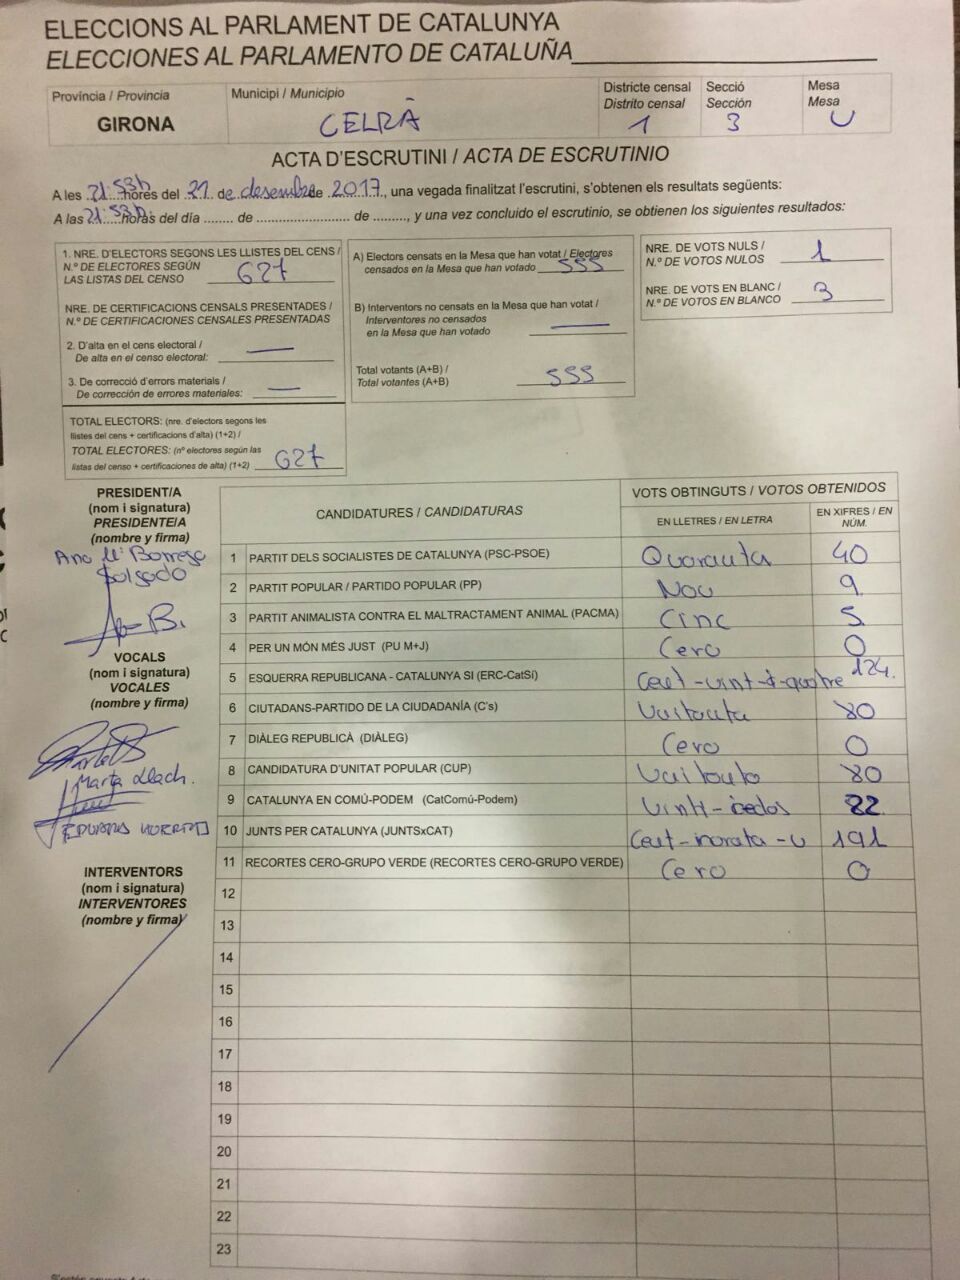 ELECCIONS AL PARLAMENT DE CATALUNYA
ELECCIONES AL PARLAMENTO DE CATALUÑA
Província / Provincia
GIRONA
Municipi / Municipio
CELRÀ
Districte censal
Distrito censal
1
Secció
Sección
3
Mesa
Mesa
U
ACTA D'ESCRUTINI / ACTA DE ESCRUTINIO
A les 21:53h hores del 21 de desembre de 2017, una vegada finalitzat l'escrutini, s'obtenen els resultats següents:
A las 21:53h. horas del día ........ de .......................... de ........, y una vez concluido el escrutinio, se obtienen los siguientes resultados:
1. NRE. D'ELECTORS SEGONS LES LLISTES DEL CENS /
N.º DE ELECTORES SEGÚN
LAS LISTAS DEL CENSO 627
NRE. DE CERTIFICACIONS CENSALS PRESENTADES /
N.º DE CERTIFICACIONES CENSALES PRESENTADAS
2. D'alta en el cens electoral /
De alta en el censo electoral: —
3. De correcció d'errors materials /
De corrección de errores materiales: —
TOTAL ELECTORS: (nre. d'electors segons les
llistes del cens + certificacions d'alta) (1+2) /
TOTAL ELECTORES: (nº electores según las
listas del censo + certificaciones de alta) (1+2) 627
A) Electors censats en la Mesa que han votat / Electores
censados en la Mesa que han votado 555
B) Interventors no censats en la Mesa que han votat /
Interventores no censados
en la Mesa que han votado —
Total votants (A+B) /
Total votantes (A+B) 555
NRE. DE VOTS NULS /
N.º DE VOTOS NULOS 1
NRE. DE VOTS EN BLANC /
N.º DE VOTOS EN BLANCO 3
PRESIDENT/A
(nom i signatura)
PRESIDENTE/A
(nombre y firma)
Ana Mª Borrego
Salgado
VOCALS
(nom i signatura)
VOCALES
(nombre y firma)
Marta Llach.
INTERVENTORS
(nom i signatura)
INTERVENTORES
(nombre y firma)
CANDIDATURES / CANDIDATURAS
VOTS OBTINGUTS / VOTOS OBTENIDOS
EN LLETRES / EN LETRA
EN XIFRES / EN NÚM.
1 PARTIT DELS SOCIALISTES DE CATALUNYA (PSC-PSOE) Quaranta 40
2 PARTIT POPULAR / PARTIDO POPULAR (PP) Nou 9
3 PARTIT ANIMALISTA CONTRA EL MALTRACTAMENT ANIMAL (PACMA) Cinc 5
4 PER UN MÓN MÉS JUST (PU M+J) Cero 0
5 ESQUERRA REPUBLICANA - CATALUNYA SI (ERC-CatSí) Cent-vint-i-quatre 124.
6 CIUTADANS-PARTIDO DE LA CIUDADANÍA (C's) Vuitanta 80
7 DIÀLEG REPUBLICÀ (DIÀLEG) Cero 0
8 CANDIDATURA D'UNITAT POPULAR (CUP) Vuitanta 80
9 CATALUNYA EN COMÚ-PODEM (CatComú-Podem) Vint-i-dos 22
10 JUNTS PER CATALUNYA (JUNTSxCAT) Cent-norata-u 191
11 RECORTES CERO-GRUPO VERDE (RECORTES CERO-GRUPO VERDE) Cero 0
12
13
14
15
16
17
18
19
20
21
22
23